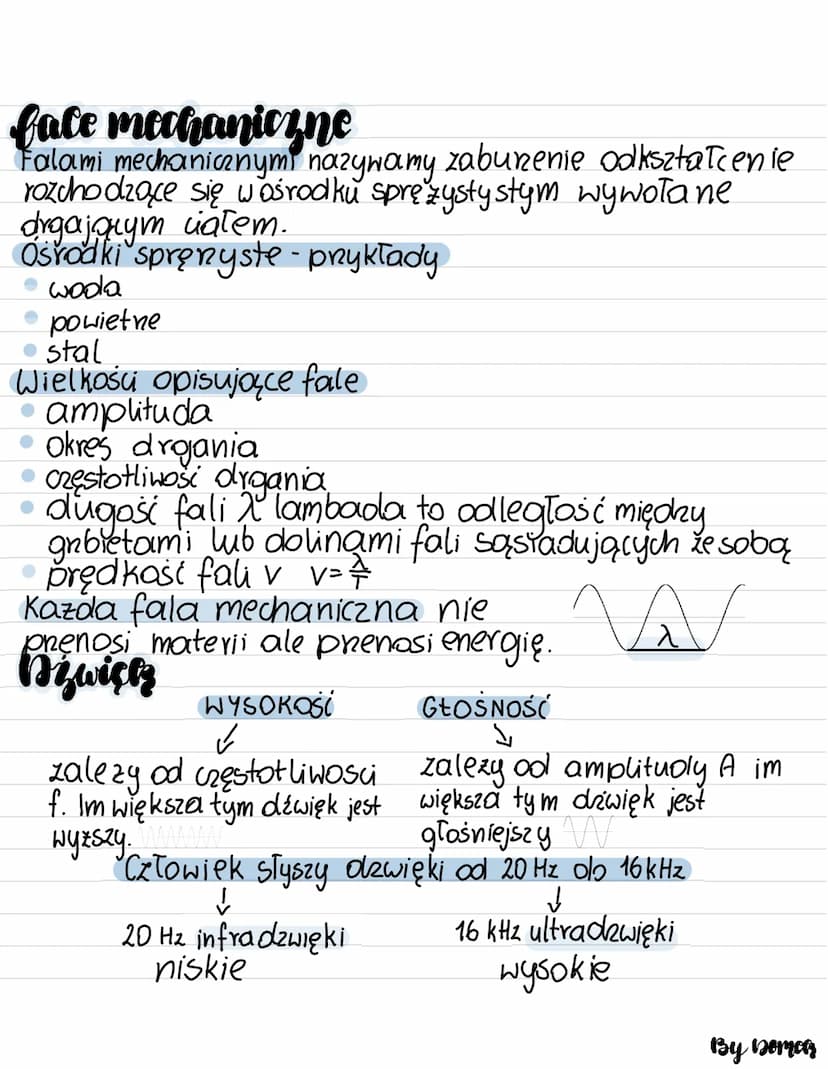 fale mechaniczne
Falami mechanicznymi nazywamy zaburzenie odkształcenie
rozchodzące się w ośrodku sprężystystym wywołane
drgającym ciałem.
Ośrodki sprężyste - przykłady
• woda
• powietrze
• stal
Wielkości opisujące fale
• amplituda
• okres drgania
• częstotliwość drgania
• długość fali λ lambada to odległość między
grzbietami lub dolinami fali sąsiadujących ze sobą
• prędkość fali v v=λ/T
Każda fala mechaniczna nie
przenosi materii ale przenosi energię.
λ
Dźwięki
WYSOKOŚĆ GŁOŚNOŚĆ
zależy od częstotliwości zależy od amplitudy A im
f. Im większa tym dźwięk jest większa tym dźwięk jest
wyższy. głośniejszy
Człowiek słyszy dzwięki od 20 Hz do 16 kHz
20 Hz infradzwięki 16 kHz ultradzwięki
niskie wysokie
By Domcia